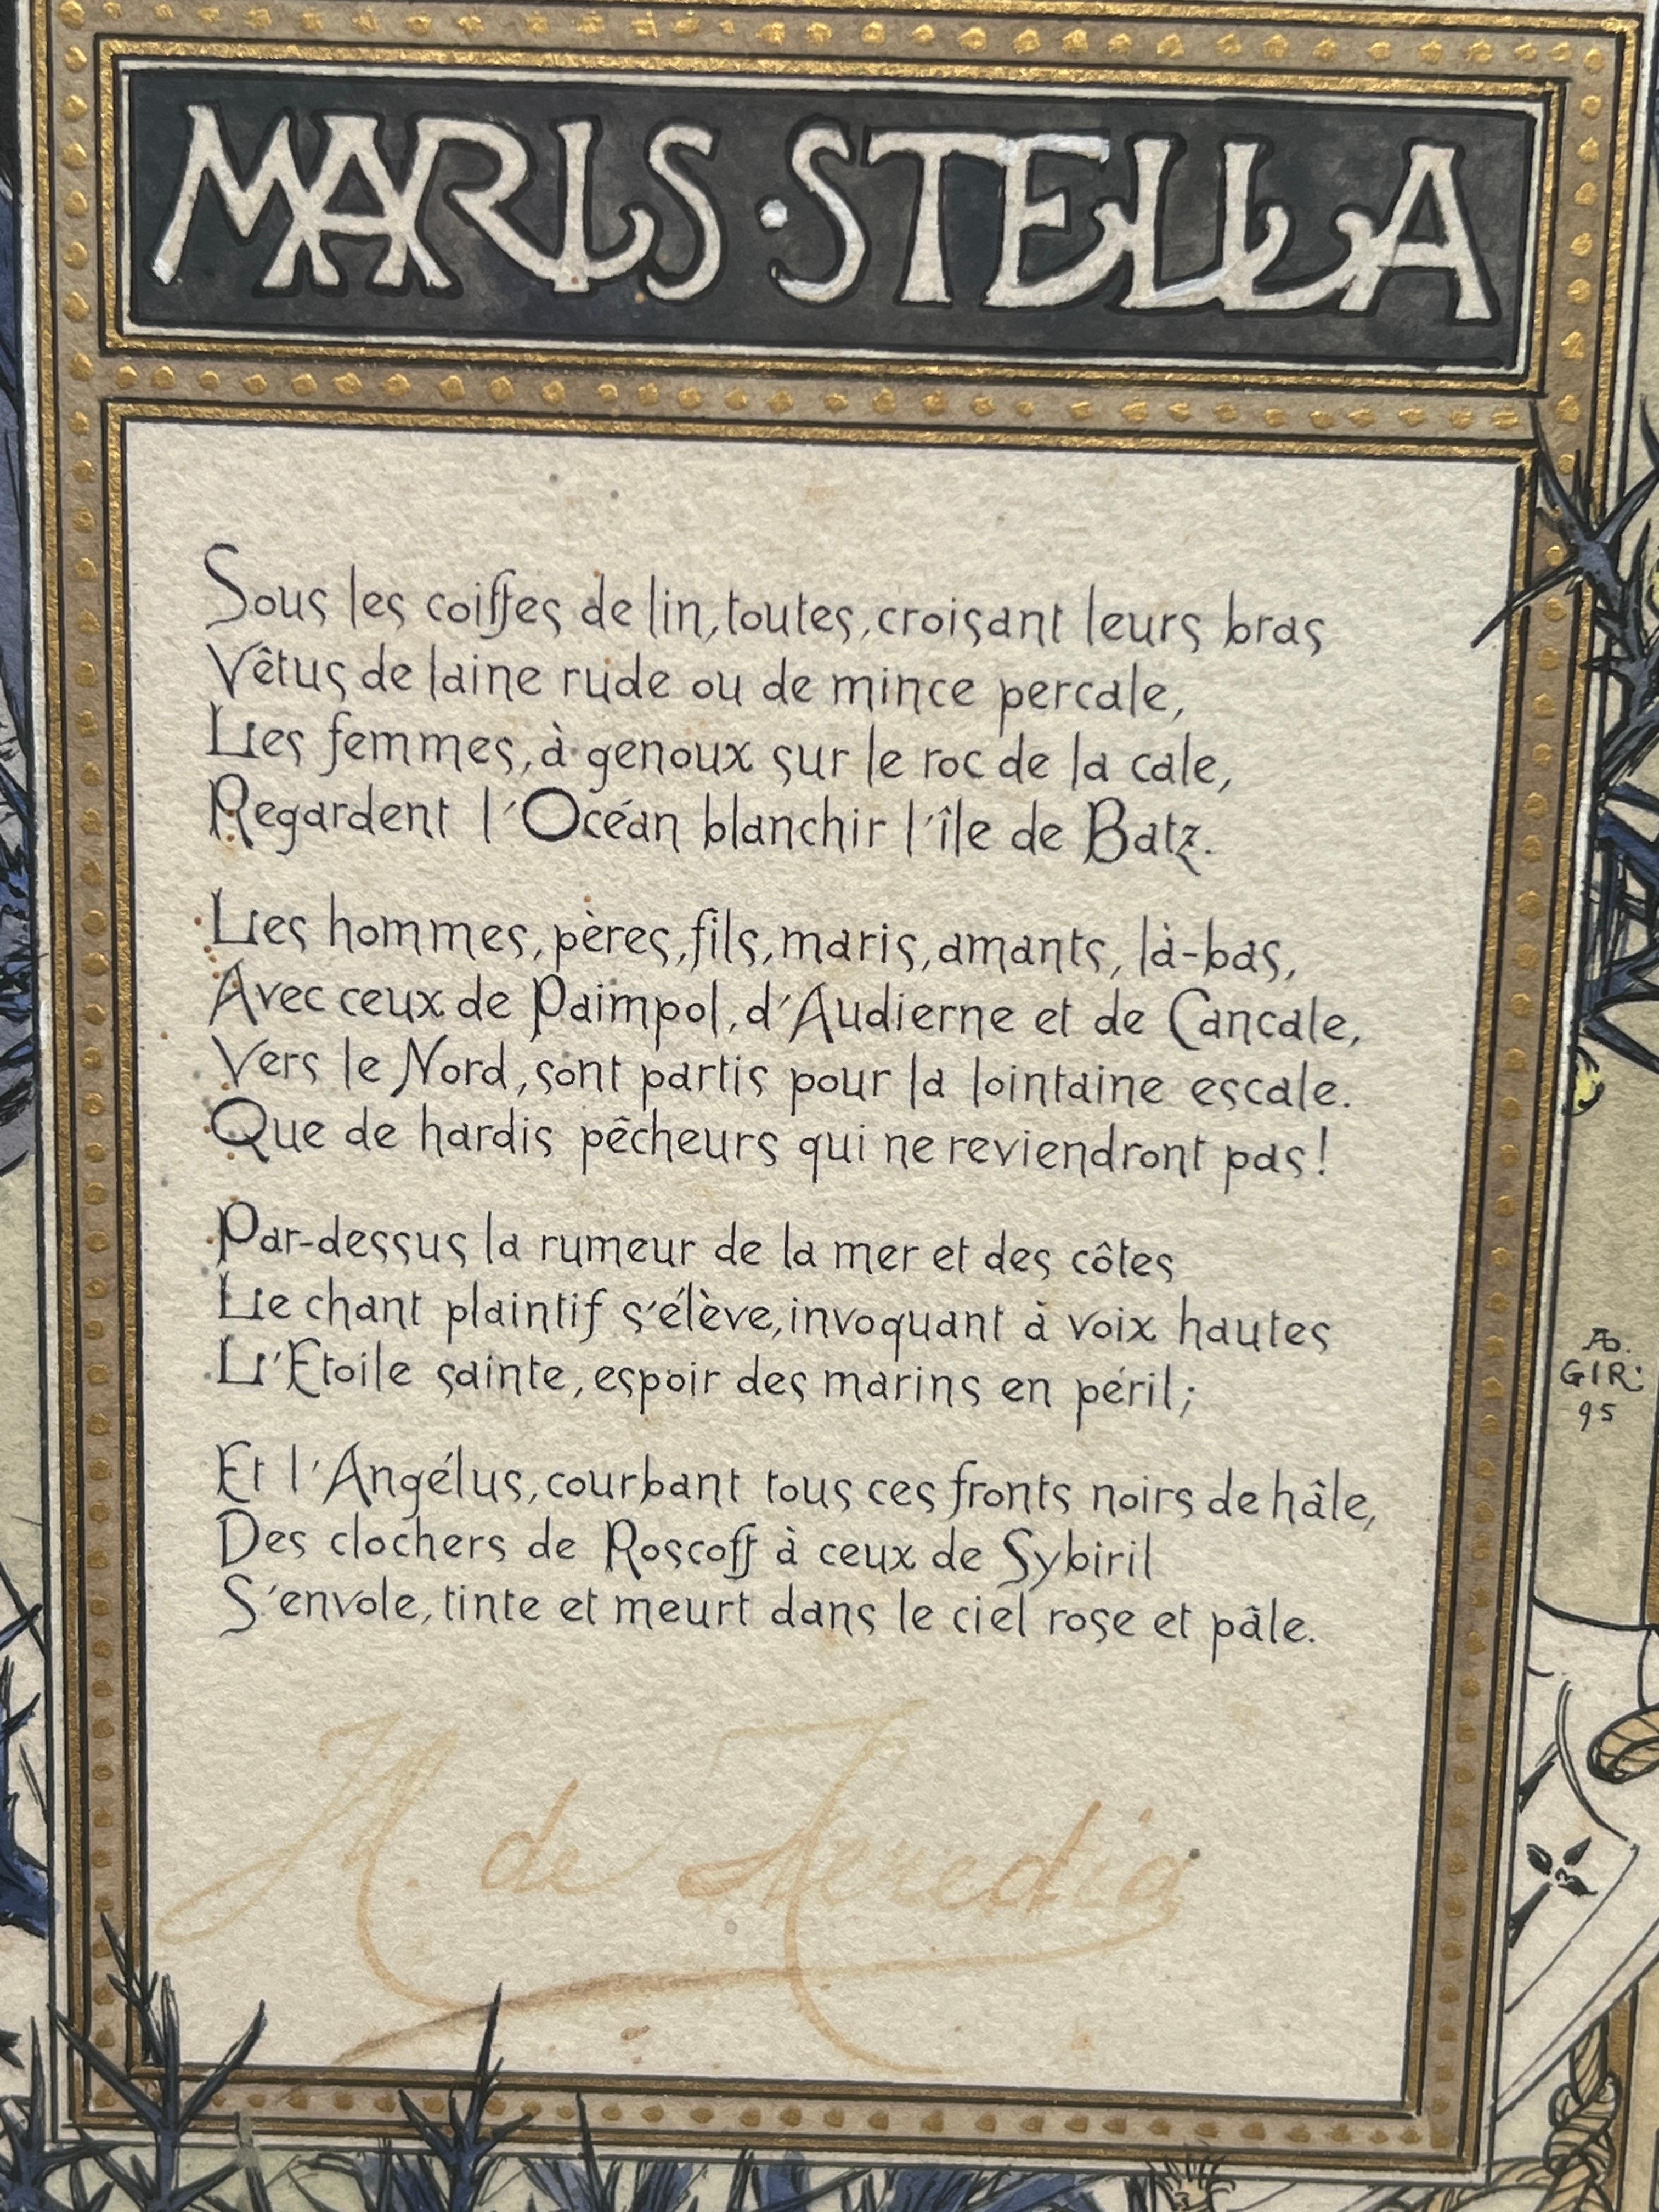 MARIS · STELLA
Sous les coiffes de lin, toutes, croisant leurs bras
Vêtus de laine rude ou de mince percale,
Les femmes, à genoux sur le roc de la cale,
Regardent l'Océan blanchir l'île de Batz.
Les hommes, pères, fils, maris, amants, là-bas,
Avec ceux de Paimpol, d'Audierne et de Cancale,
Vers le Nord, sont partis pour la lointaine escale.
Que de hardis pêcheurs qui ne reviendront pas!
Par-dessus la rumeur de la mer et des côtes
Le chant plaintif s'élève, invoquant à voix hautes
L'Etoile sainte, espoir des marins en péril;
Et l'Angélus, courbant tous ces fronts noirs de hâle,
Des clochers de Roscoff à ceux de Sybiril
S'envole, tinte et meurt dans le ciel rose et pâle.
de Heredia
AD.
GIR:
95